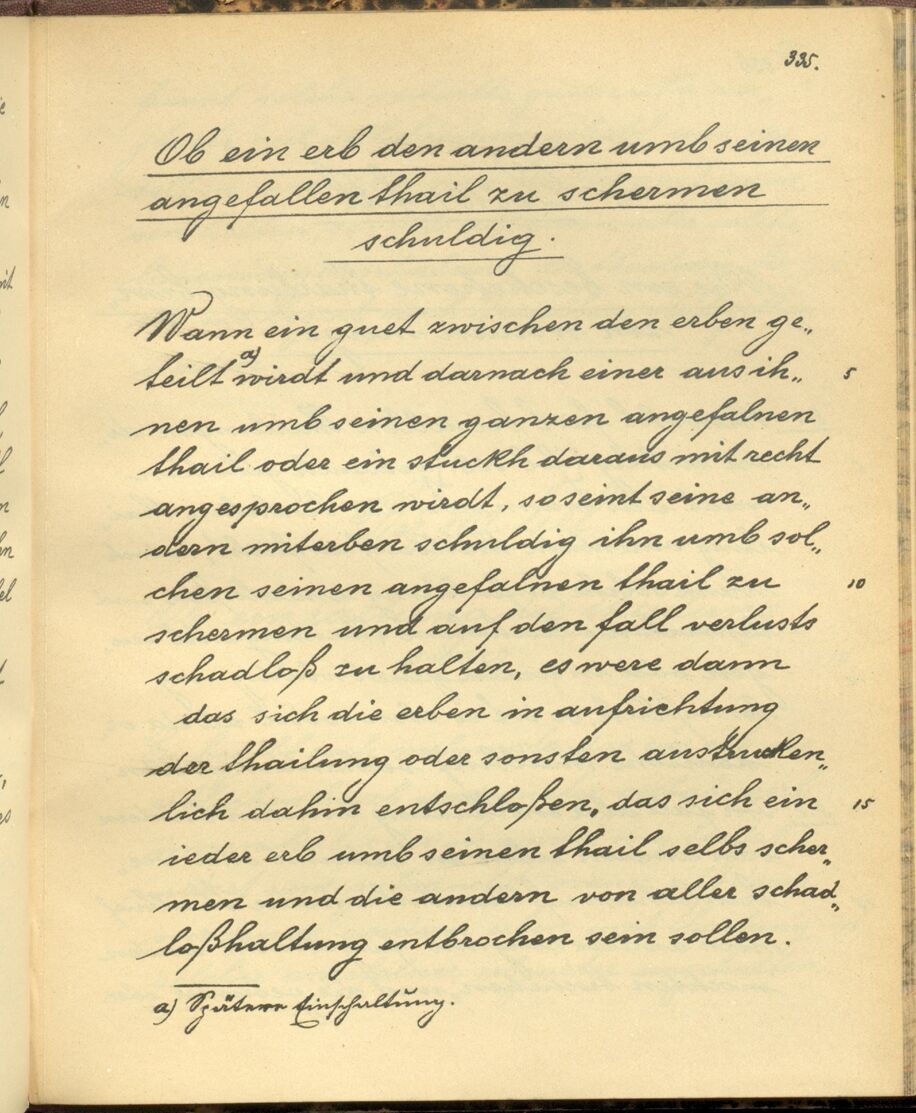 335.
Ob ein erb den andern umb seinen
angefallen thail zu schermen
schuldig.
Wann ein guet zwischen den erben ge„
teilt a) wirdt und darnach einer aus ih„
5
nen umb seinen ganzen angefalnen
thail oder ein stuckh daraus mit recht
angesprochen wirdt, so seint seine an„
dern miterben schuldig ihn umb sol„
chen seinen angefalnen thail zu
10
schermen und auf den fall verlusts
schadloß zu halten, es were dann
das sich die erben in aufrichtung
der thailung oder sonsten austrucken„
lich dahin entschloßen, das sich ein
15
ieder erb umb seinen thail selbs scher„
men und die andern von aller schad„
loßhaltung entbrochen sein sollen.
a) Spätere Einschaltung.